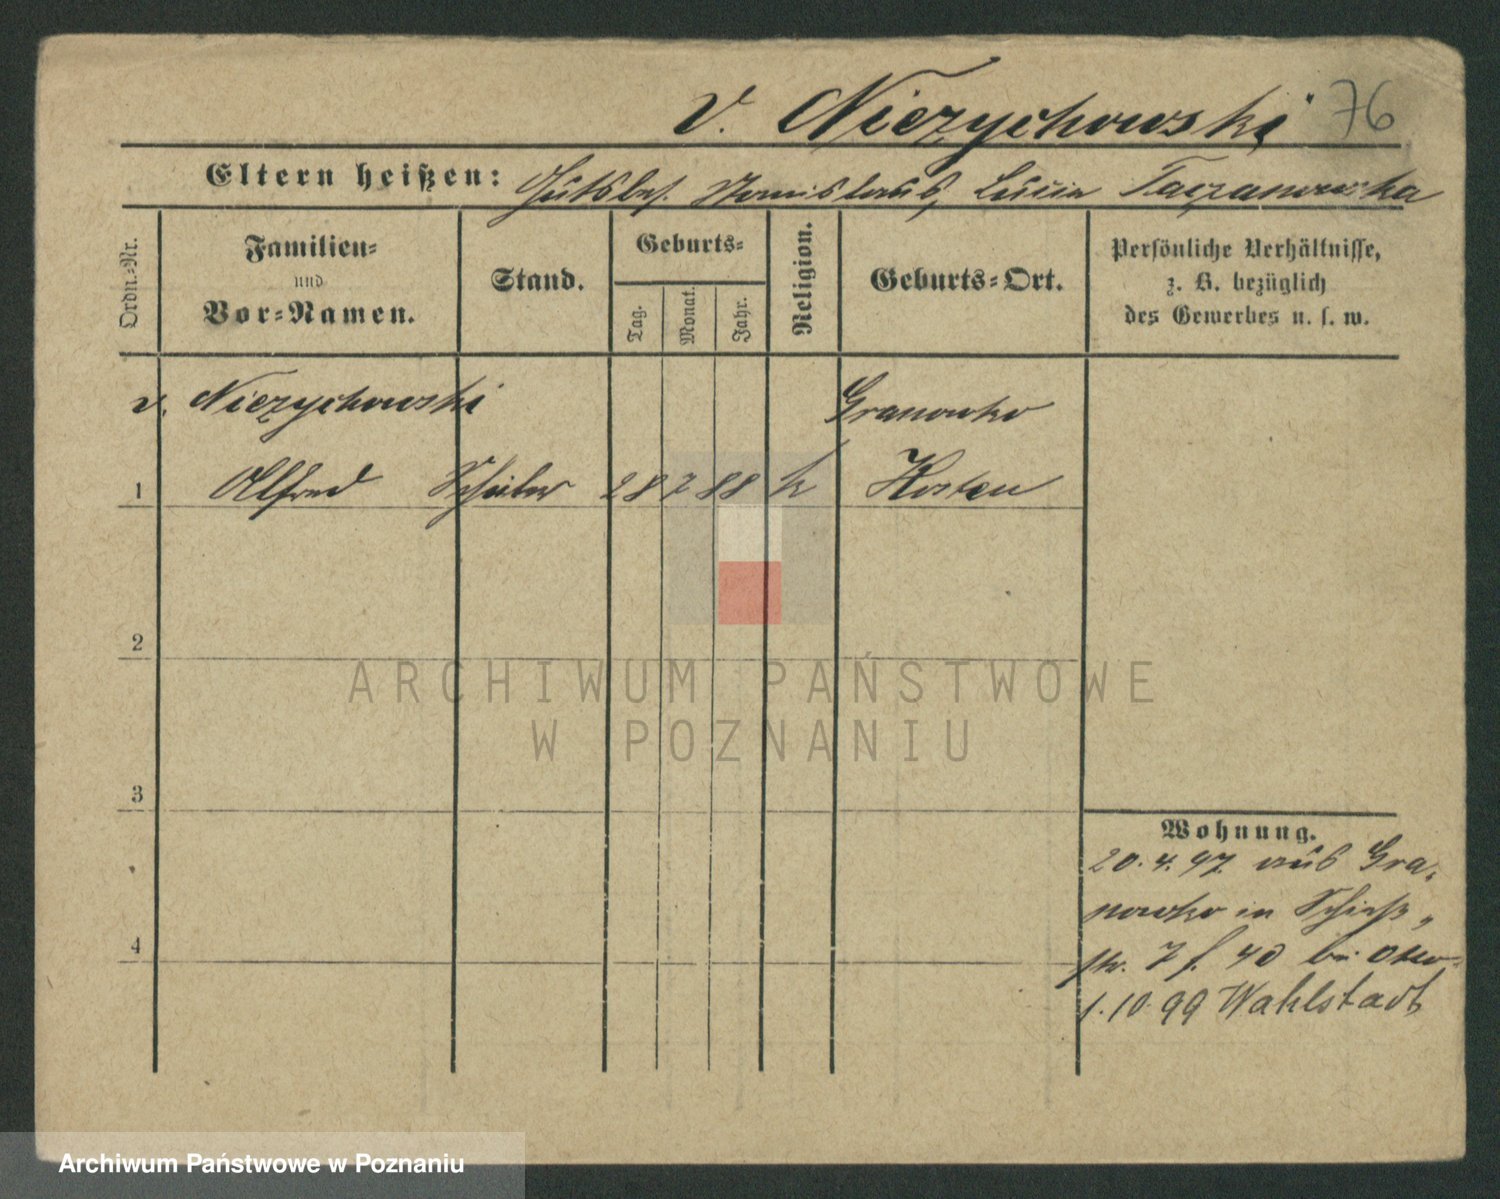 v. Niezychowski 76
Eltern heißen: Gutsbes. Stanislaus, Lucia Taczanowska
Ordn.-Nr.
Familien-
und
Vor-Namen.
Stand.
Geburts-
Tag.
Monat.
Jahr.
Religion.
Geburts-Ort.
Persönliche Verhältnisse,
z. B. bezüglich
des Gewerbes u. s. w.
v. Niezychowski Granowko
1 Alfred Schüler 28 7 88 k Kosten
2
3
4
Wohnung.
20.4.97. aus Gra-
nowko in Schieß-
str. 7 f. 40 bei
1.10.99 Wahlstadt
ARCHIWUM PAŃSTWOWE
W POZNANIU
Archiwum Państwowe w Poznaniu